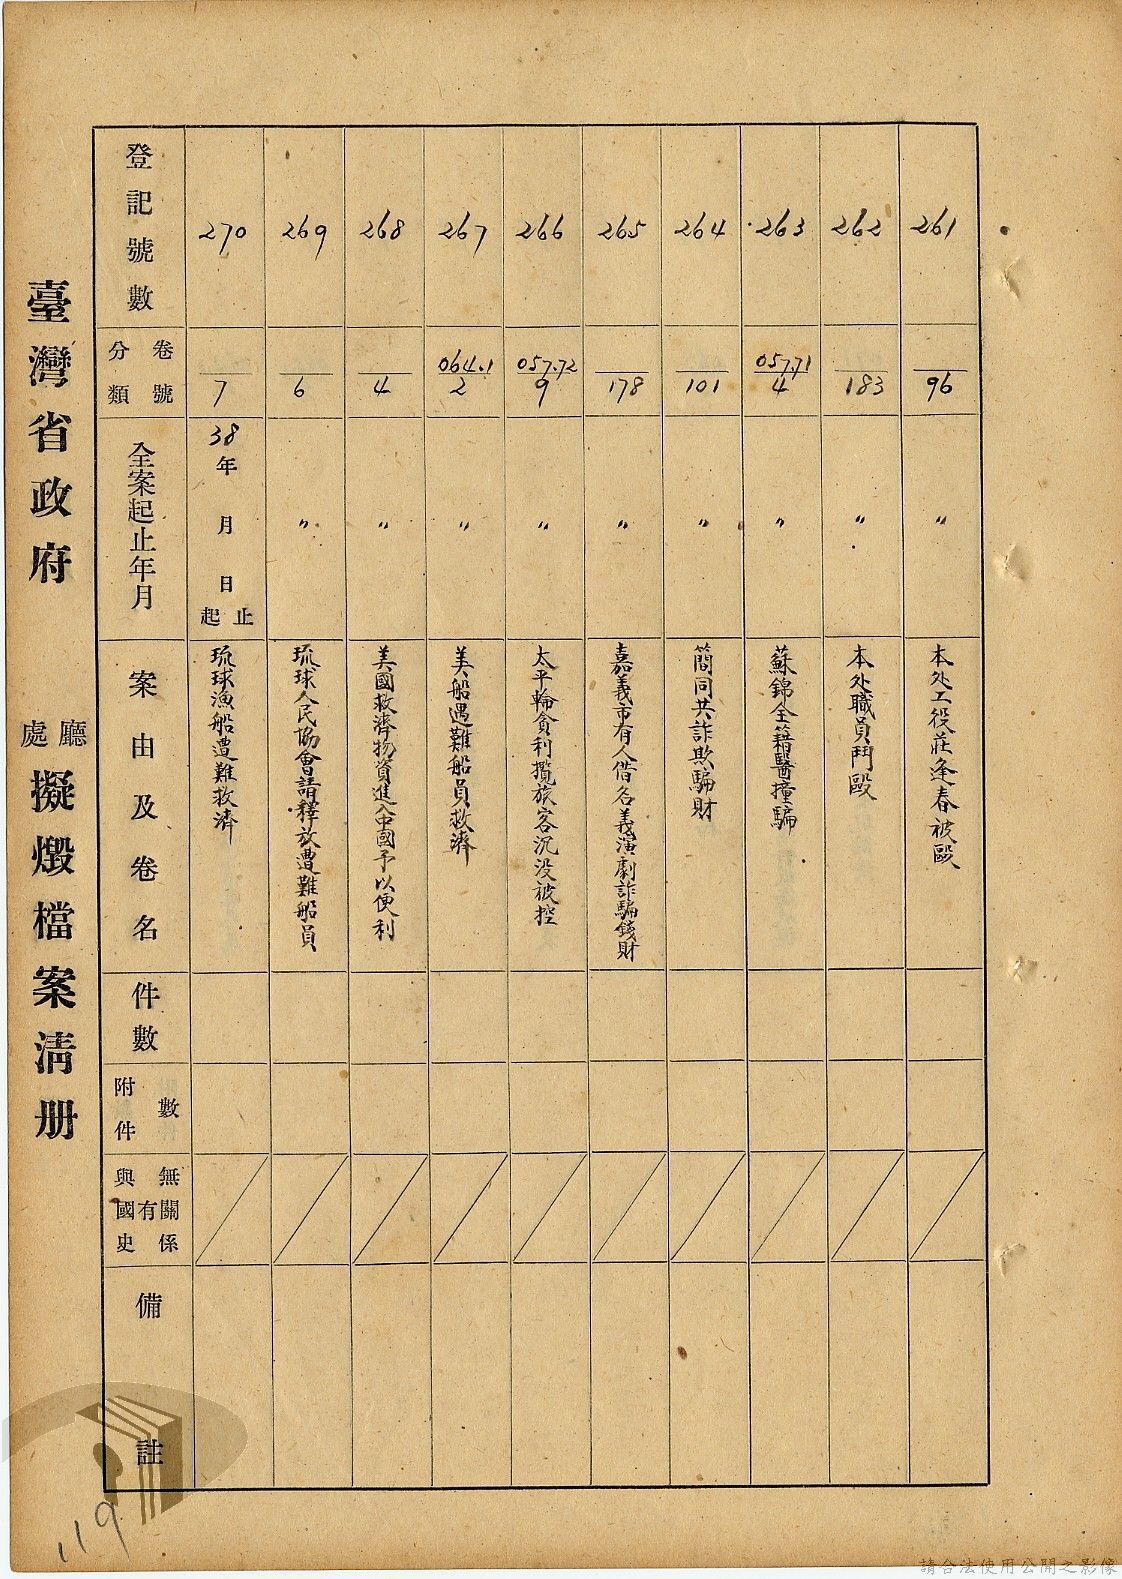 臺灣省政府 廳處 擬燬檔案清册
登記號數
270
269
268
267
266
265
264
263
262
261
分類 卷號
7
6
4
064.1
2
057.72
9
178
101
057.71
4
183
96
全案起止年月
38年 月 日 起止
〃
〃
〃
〃
〃
〃
〃
〃
〃
案由及卷名
琉球漁船遭難救濟
琉球人民協會請釋放遭難船員
美國救濟物資進入中國予以便利
美船遇難船員救濟
太平輪貪利攬旅客沉没被控
嘉義市有人借名義演劇詐騙錢財
簡同共詐欺騙財
蘇錦全籍醫撞騙
本处職員鬥毆
本处工役莊逢春被毆
件數
附件數
與國史有無關係
備註
119
請合法使用公開之影像